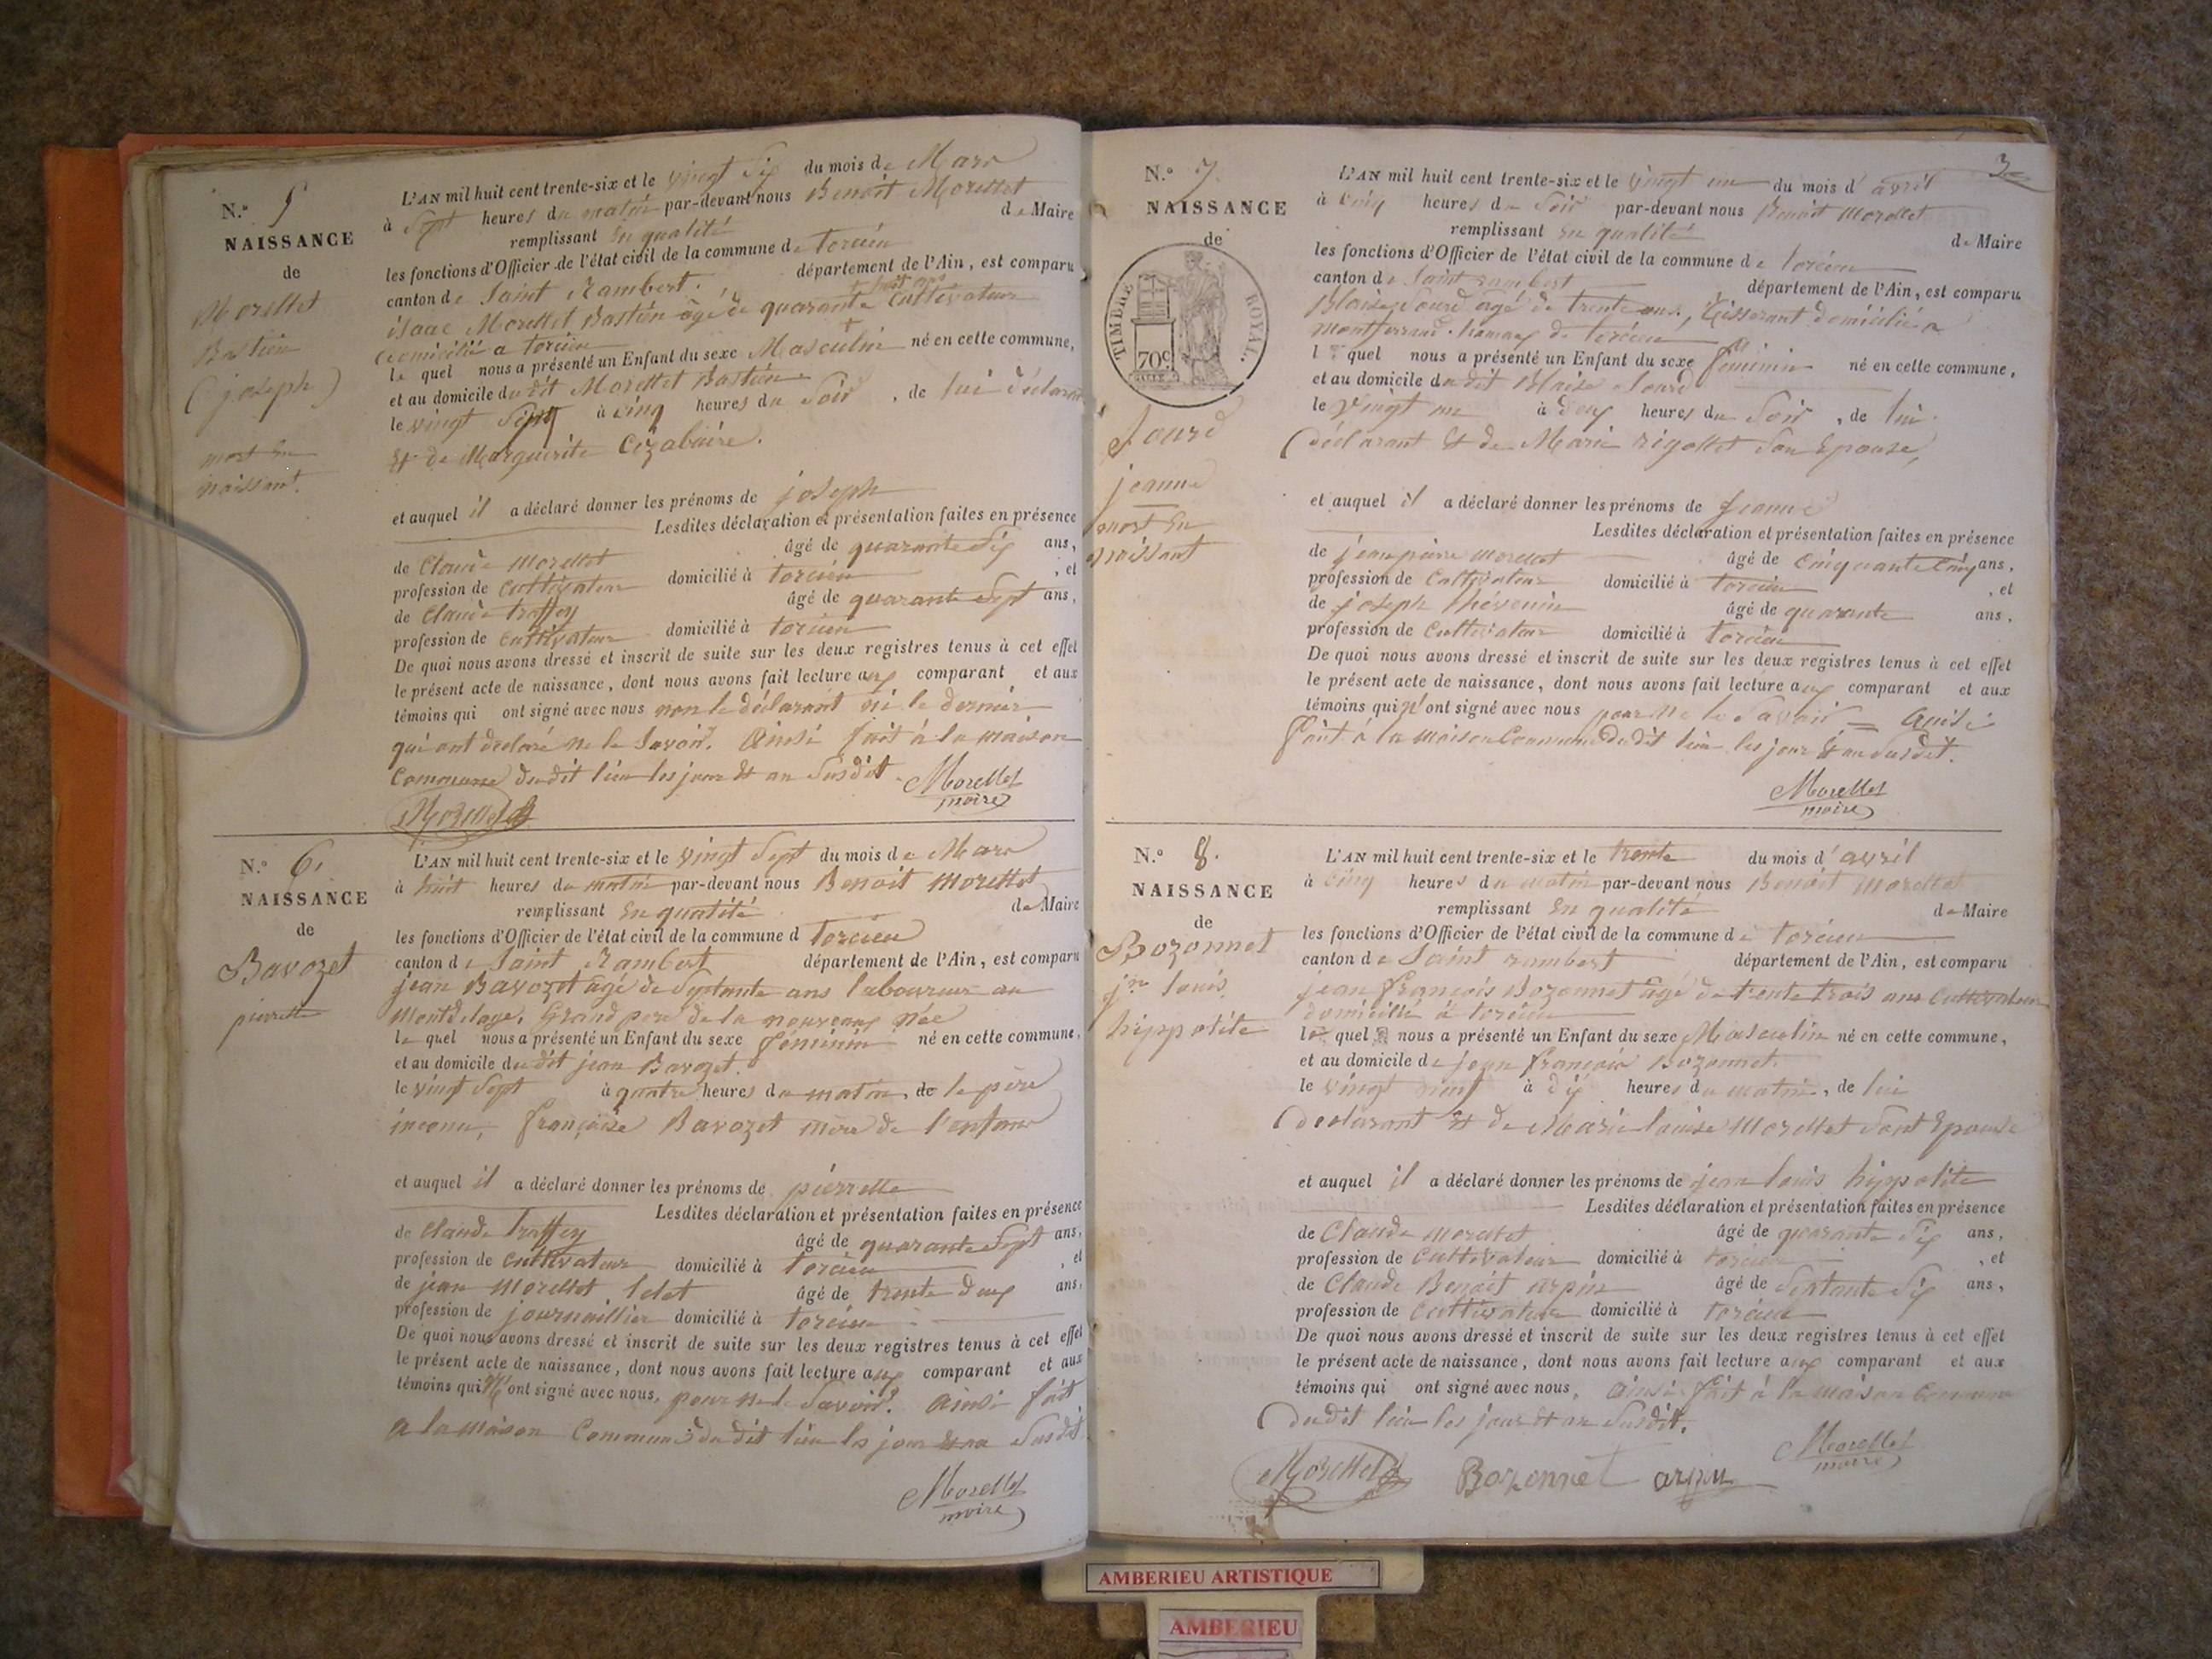 N.º 5
NAISSANCE
de
Morellet
Bastien
(joseph)
mort en
naissant.
L'AN mil huit cent trente-six et le vingt six du mois de Mars
à Sept heures du matin par-devant nous Benoit Morellet
remplissant En qualité de Maire
les fonctions d'Officier de l'état civil de la commune de torcieu
canton de Saint Rambert. département de l'Ain, est comparu
isaac Morellet Bastien âgé de quarante huit ans Cultivateur
domicilié a torcieu
le quel nous a présenté un Enfant du sexe Masculin né en cette commune,
et au domicile du dit Morellet Bastien
le vingt à cinq heures du Soir, de lui déclarant
et de Marguerite
et auquel il a déclaré donner les prénoms de joseph
Lesdites déclaration et présentation faites en présence
de Claude Morellet âgé de quarante Six ans,
profession de Cultivateur domicilié à torcieu, et
de Claude traffey âgé de quarante Sept ans,
profession de Cultivateur domicilié à torcieu
De quoi nous avons dressé et inscrit de suite sur les deux registres tenus à cet effet
le présent acte de naissance, dont nous avons fait lecture aux comparant et aux
témoins qui ont signé avec nous non le déclarant ni le dernier
qui ont declaré ne le Savoir. Ainsi fait à la maison
Commune du dit lieu les jour et an Susdit.
Morellet
maire
Morellet
N.º 6.
NAISSANCE
de
Bavozet
pierrette
L'AN mil huit cent trente-six et le vingt Sept du mois de Mars
à huit heures du matin par-devant nous Benoit Morellet
remplissant En qualité de Maire
les fonctions d'Officier de l'état civil de la commune d torcieu
canton de Saint Rambert département de l'Ain, est comparu
jean Bavozet âgé de Septante ans laboureur au
Montdelage, Grand pere de la nouveaux née
le quel nous a présenté un Enfant du sexe féminin né en cette commune,
et au domicile du dit jean Bavozet.
le vingt Sept à quatre heures du matin, de le père
inconu, françoise Bavozet mère de l'enfant
et auquel il a déclaré donner les prénoms de pierrette
Lesdites déclaration et présentation faites en présence
de Claude Traffey âgé de quarante Sept ans,
profession de Cultivateur domicilié à torcieu, et
de jean Morellet âgé de trente deux ans,
profession de journaillier domicilié à torcieu
De quoi nous avons dressé et inscrit de suite sur les deux registres tenus à cet effet
le présent acte de naissance, dont nous avons fait lecture aux comparant et aux
témoins qui n'ont signé avec nous, pour ne le Savoir. Ainsi fait
a la maison Commune du dit lieu les jour et an Susdit
Morellet
maire
3
N.º 7.
NAISSANCE
de
TIMBRE ROYAL.
70c
Jourd
jeanne
mort en
naissant
L'AN mil huit cent trente-six et le vingt un du mois d'avril
à Cinq heures du Soir par-devant nous Benoit Morellet
remplissant en qualité de Maire
les fonctions d'Officier de l'état civil de la commune de torcieu
canton de Saint rambert département de l'Ain, est comparu
Blaise Jourd agé de trente ans, tisserant domicilié a
montferrand hameau de torcieu
le quel nous a présenté un Enfant du sexe féminin né en cette commune,
et au domicile du dit Blaise Jourd
le Vingt un à deux heures du Soir, de lui
déclarant et de Marie rigollet Son Epouse,
et auquel il a déclaré donner les prénoms de jeanne
Lesdites déclaration et présentation faites en présence
de jean pierre Morellet âgé de Cinquante Cinq ans,
profession de Cultivateur domicilié à torcieu, et
de joseph thévenin âgé de quarante ans,
profession de Cultivateur domicilié à torcieu
De quoi nous avons dressé et inscrit de suite sur les deux registres tenus à cet effet
le présent acte de naissance, dont nous avons fait lecture aux comparant et aux
témoins qui n'ont signé avec nous pour ne le Savoir = Ainsi
fait à la maison Commune du dit lieu les jour et an Susdit.
Morellet
maire
N.º 8.
NAISSANCE
de
Bozonnet
jn louis
hippolite
L'AN mil huit cent trente-six et le trente du mois d'avril
à cinq heures du matin par-devant nous Benoit Morellet
remplissant En qualité de Maire
les fonctions d'Officier de l'état civil de la commune de torcieu
canton de Saint rambert département de l'Ain, est comparu
jean françois Bozonnet âgé de trente trois ans Cultivateur
domicilié à torcieu
le quel nous a présenté un Enfant du sexe Masculin né en cette commune,
et au domicile de jean françois Bozonnet.
le vingt neuf à dix heures du matin, de lui
déclarant et de Marie louise Morellet Sont Epouse
et auquel il a déclaré donner les prénoms de jean louis hippolite
Lesdites déclaration et présentation faites en présence
de Claude Morellet âgé de quarante Six ans,
profession de Cultivateur domicilié à torcieu, et
de Claude Benoit arpin âgé de Septante Six ans,
profession de Cultivateur domicilié à torcieu
De quoi nous avons dressé et inscrit de suite sur les deux registres tenus à cet effet
le présent acte de naissance, dont nous avons fait lecture aux comparant et aux
témoins qui ont signé avec nous, Ainsi fait à la maison Commune
du dit lieu les jour et an Susdit.
Morellet
maire
Morellet Bozonnet arpin
AMBERIEU ARTISTIQUE
AMBERIEU